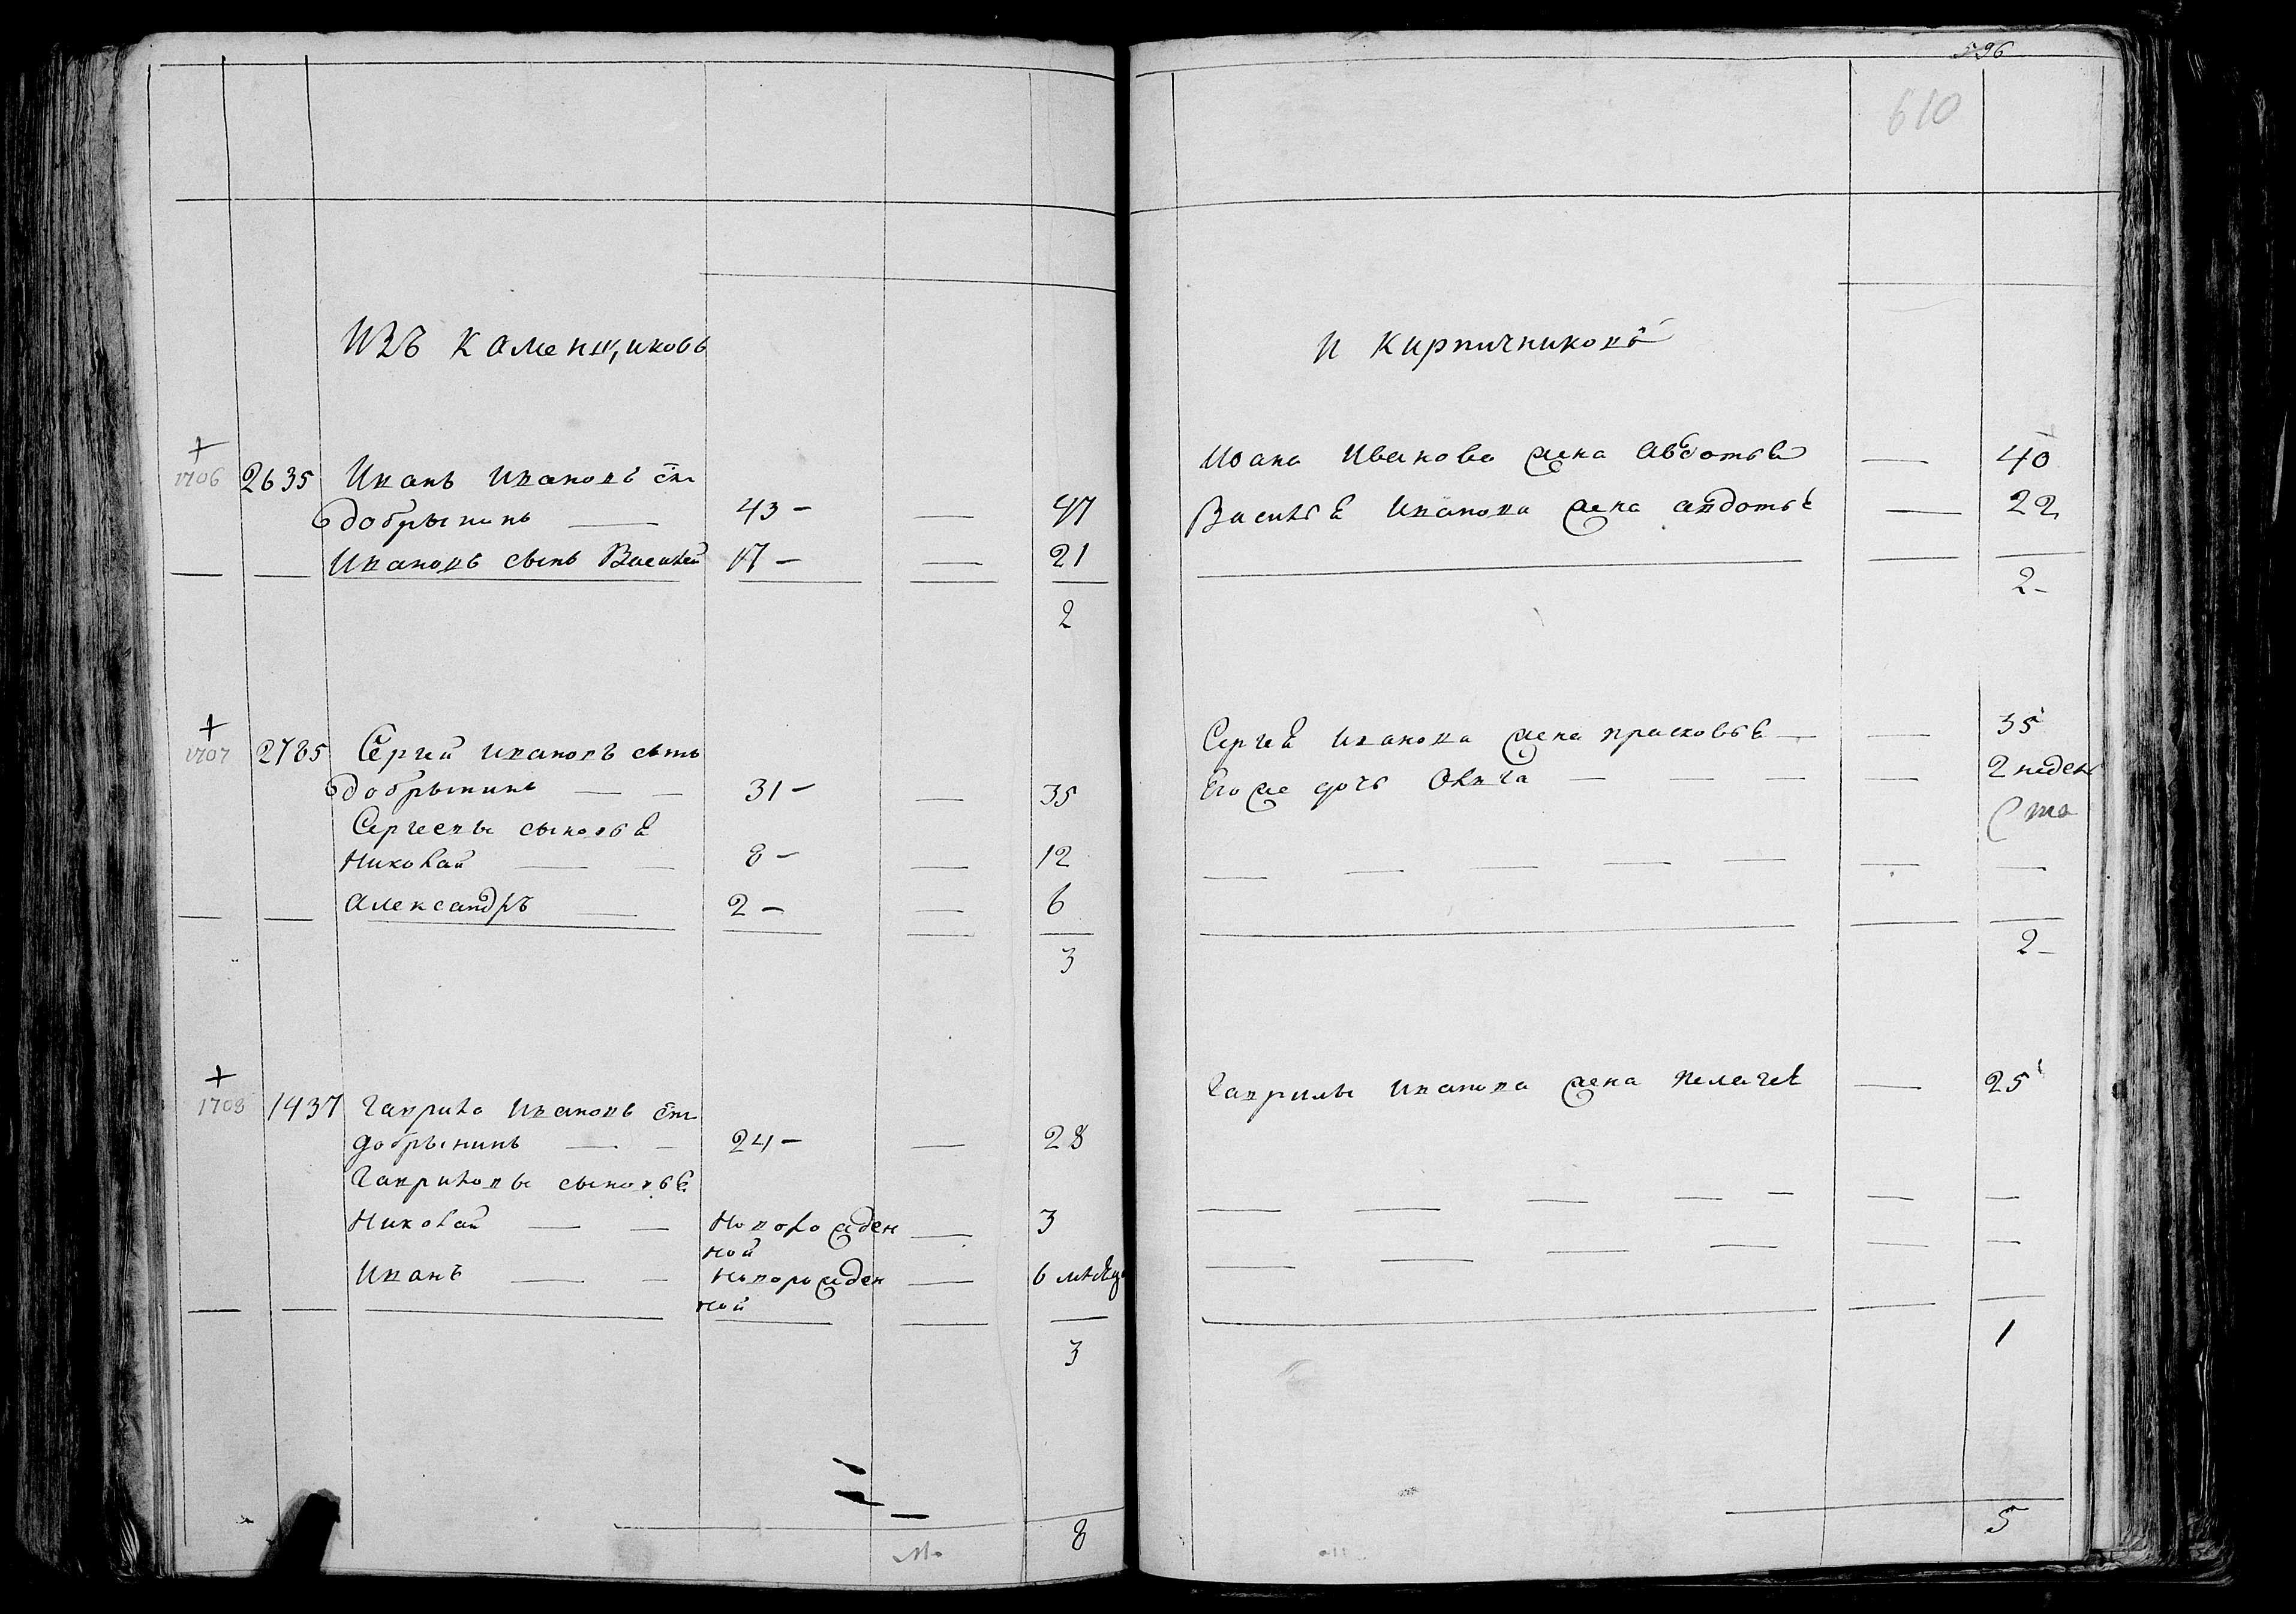 596
610
Изъ Каменщиковъ
и Кирпичниковъ
+
1706 2635 Иванъ Ивановъ сн
Добрынинъ — 43 — — 47
Ивановъ сынъ Василей 17 — — 21
2
Ивана Иванова жена Авдотья — 40
Василья Иванова жена авдотья — 22
2
+
1707 2785 Сергей ивановъ сынъ
Добрынинъ — — 31 — — 35
Сергеевы сыновья
Николай — — 8 — — 12
Александръ — 2 — — 6
3
Сергея иванова жена прасковья — — 35
Его же дочь Ольга — — — — 2 недел
2
+
1708 1437 Гаврило Ивановъ сн
добрынинъ — — 24 — — 28
Гавриловы сыновья
Николай — — новорожден — 3
ной
Иванъ — — новорожден — 6 месяц
ной
3
Гаврилы иванова жена пелагея — 25
1
8
5